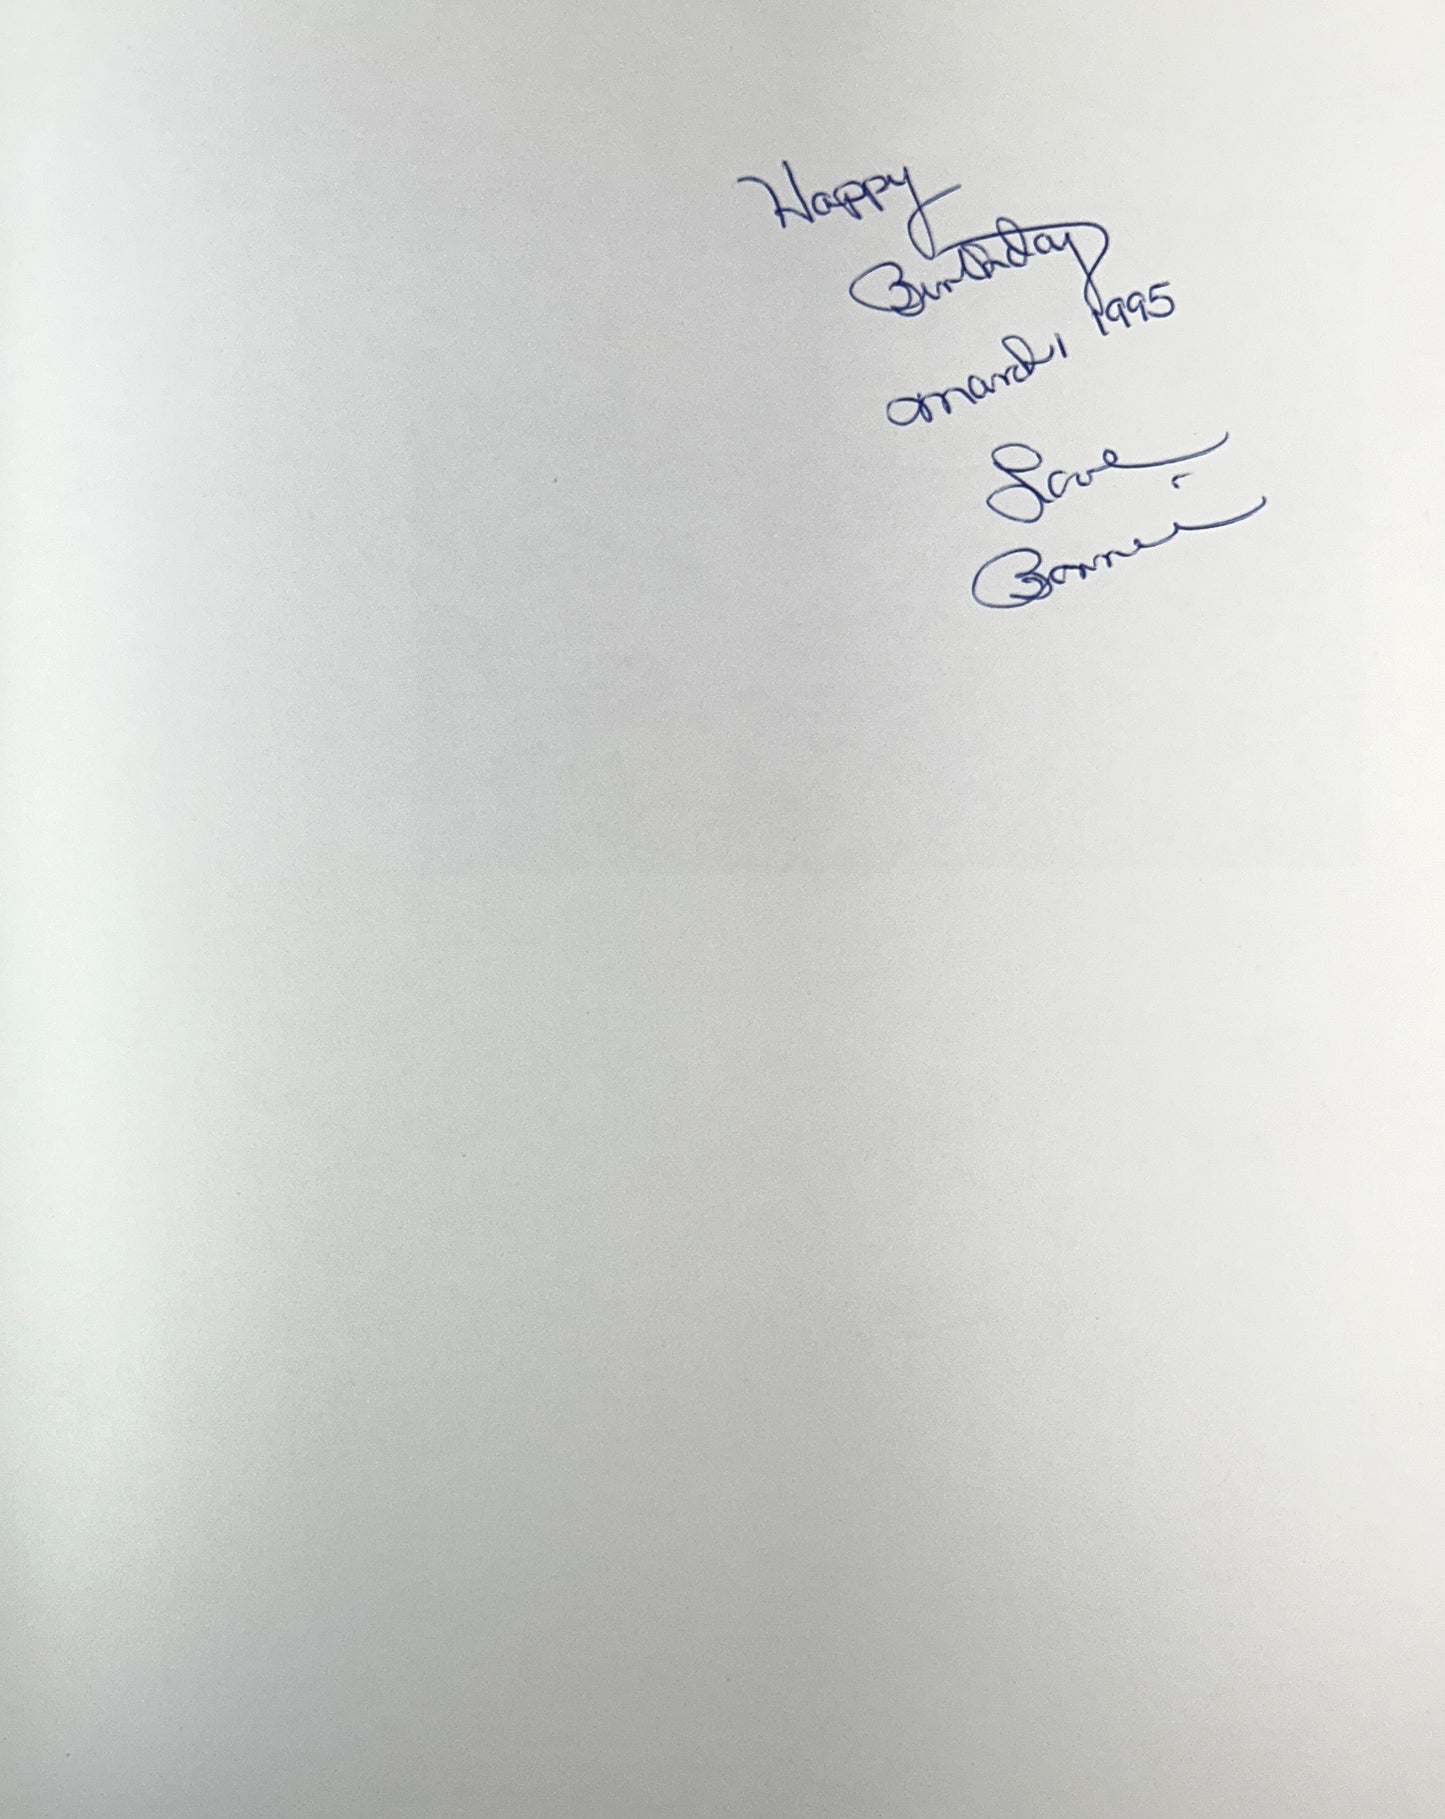 Happy
Birthday
March 1995
Love
Bonnie